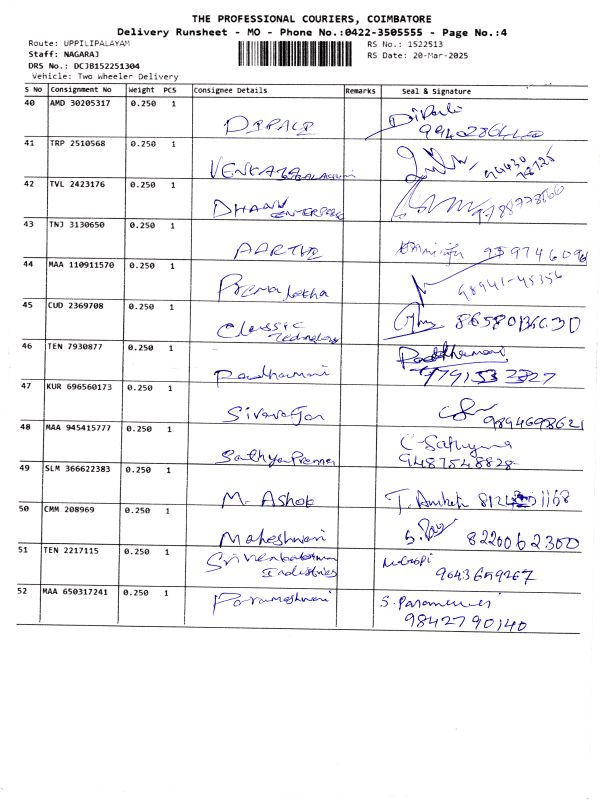 THE PROFESSIONAL COURIERS, COIMBATORE
Delivery Runsheet - MO - Phone No.:0422-3505555 - Page No.:4
Route: UPPILIPALAYAM RS No.: 1522513
Staff: NAGARAJ RS Date: 20-Mar-2025
DRS No.: DCJB152251304
Vehicle: Two Wheeler Delivery
S No Consignment No Weight PCS Consignee Details Remarks Seal & Signature
40 AMD 30205317 0.250 1
DIPALI Dipali
41 TRP 2510568 0.250 1
VENKATA
42 TVL 2423176 0.250 1
DHAAN ENTERPRISE
43 TNJ 3130650 0.250 1
AARTHI
44 MAA 110911570 0.250 1
Premalatha 98941-45356
45 CUD 2369708 0.250 1
Classic Technology
46 TEN 7930877 0.250 1
Padhamani Padhamani
47 KUR 696560173 0.250 1
Sivarajan 9894698621
48 MAA 945415777 0.250 1
Sathya Prema
9487548828
49 SLM 366622383 0.250 1
M. Ashok
50 CMM 208969 0.250 1
Maheshwari 8220062300
51 TEN 2217115 0.250 1
Industries 9043659267
52 MAA 650317241 0.250 1
Parameshwari S. Parameswari
9842790140